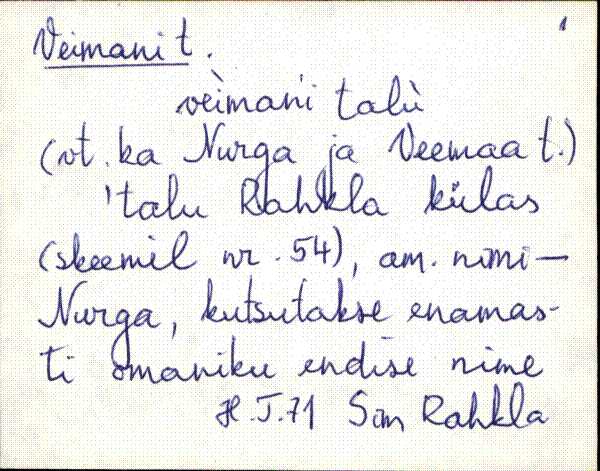 1
Veimani t.
vèimani talù
(vt. ka Nurga ja Veemaa t.)
'talu Rahkla külas
(skeemil nr. 54), am. nimi—
Nurga, kutsutakse enamas-
ti omaniku endise nime
H.J.71 Sim Rahkla